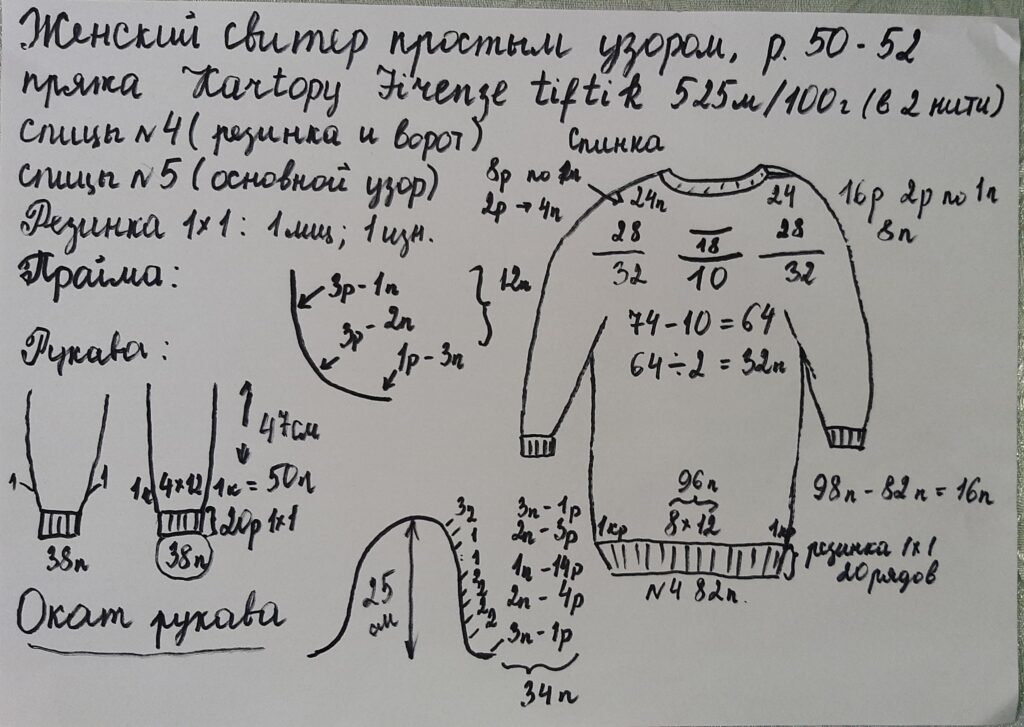 Женский свитер простым узором, р. 50-52
пряжа Kartopu Firenze tiftik 525м/100г (в 2 нити)
спицы №4 (резинка и ворот)
спицы №5 (основной узор)
Резинка 1×1: 1 лиц; 1 изн.
Пройма:
3р-1п
3р-2п
1р-3п
12п
Рукава:
1
1
38п
1к 4×12 1к = 50п
47см
20р 1×1
38п
Окат рукава
25 см
3п-1р
2п-3р
1п-14р
2п-4р
3п-1р
34п
Спинка
8р по
2р → 4п
24п
24
16р 2р по 1п
8п
28
32
18
10
28
32
74-10=64
64÷2=32п
98п-82п=16п
96п
8×12
1кр
резинка 1×1
20 рядов
№4 82п.